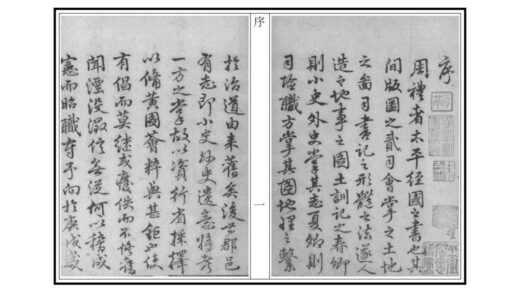 序
周禮者太平經國之書也其
間版圖之貳司會掌之土地
之圖司書記之形體之法遂人
造之地事之圖土訓記之春卿
則小史外史掌其志夏卿則
司險職方掌其圖地理之繫
序
一
於治道由來舊矣後世郡邑
有志即小史外史遺意特考
一方之掌故以資行省採擇
以備黃圖薈粹典甚鉅也使
有倡而莫繼或廢佚而不修舊
聞湮没澂信無從何以稽成
憲而昭職守予向於庚戌歲